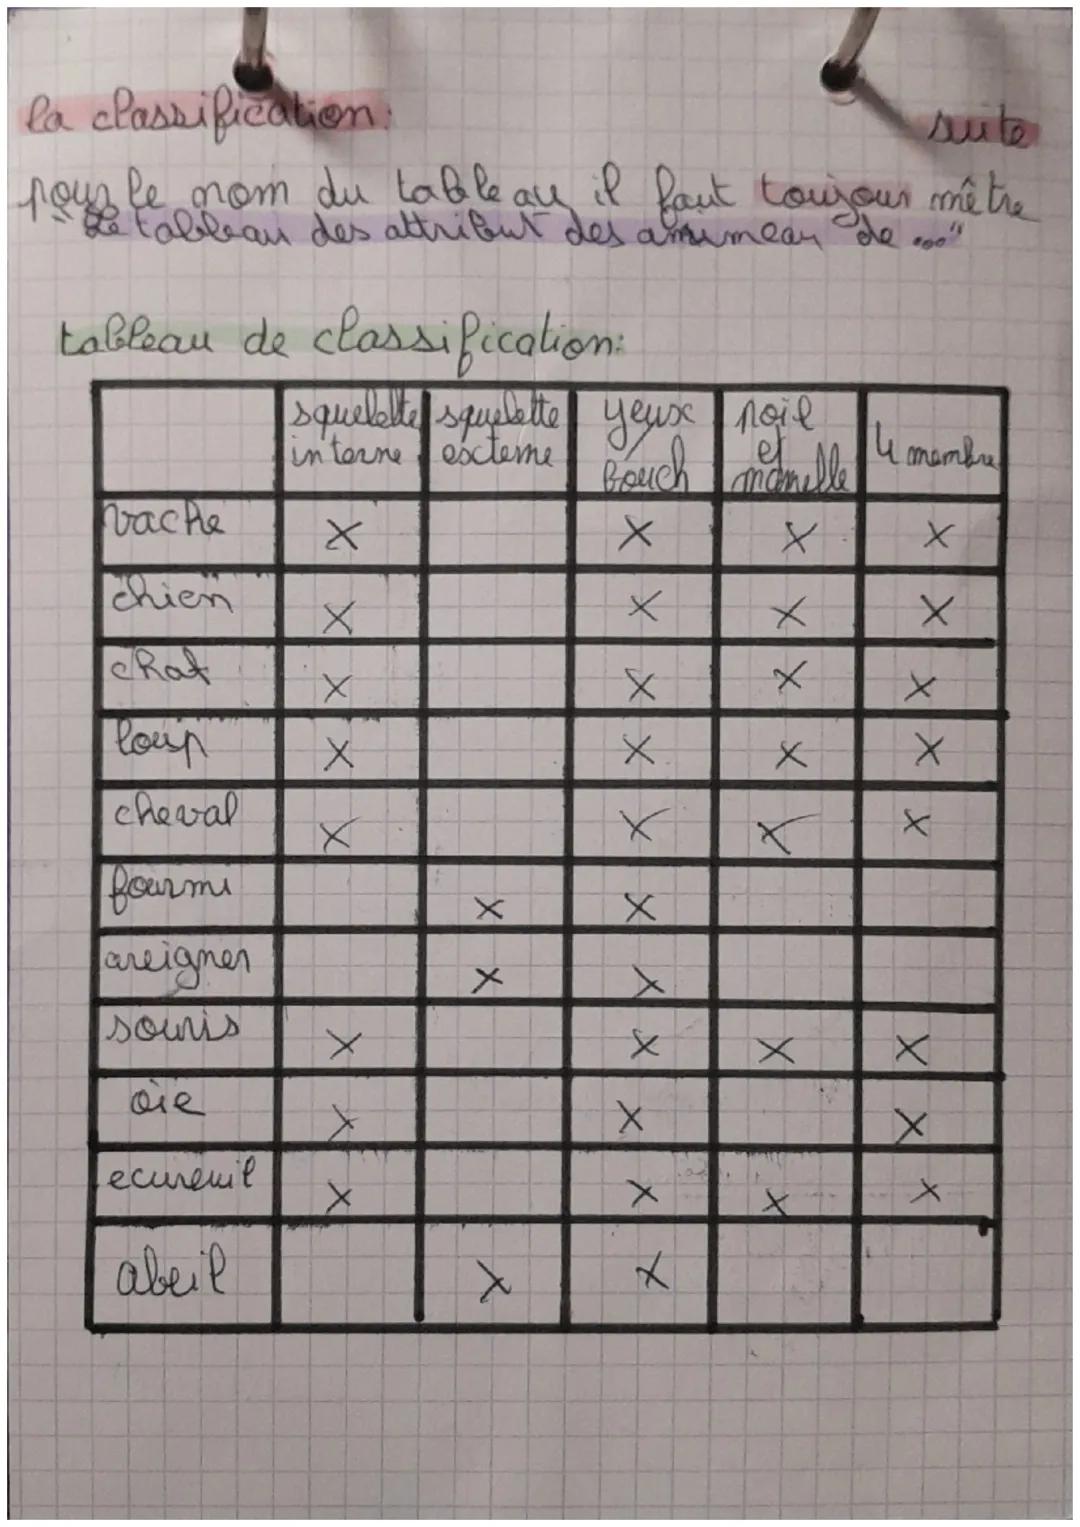 la classification: suite
pour le nom du tableau il faut toujours mêtre
"Le tableau des attribut des animeau de ..."
tableau de classification:
squelette interne squelette externe yeux bouch poil et mamelle 4 membre
vache X X X X
chien X X X X
chat X X X X
loup X X X X
cheval X X X X
fourmi X X
areigner X X
souris X X X X
oie X X X
ecureuil X X X X
abeil X X